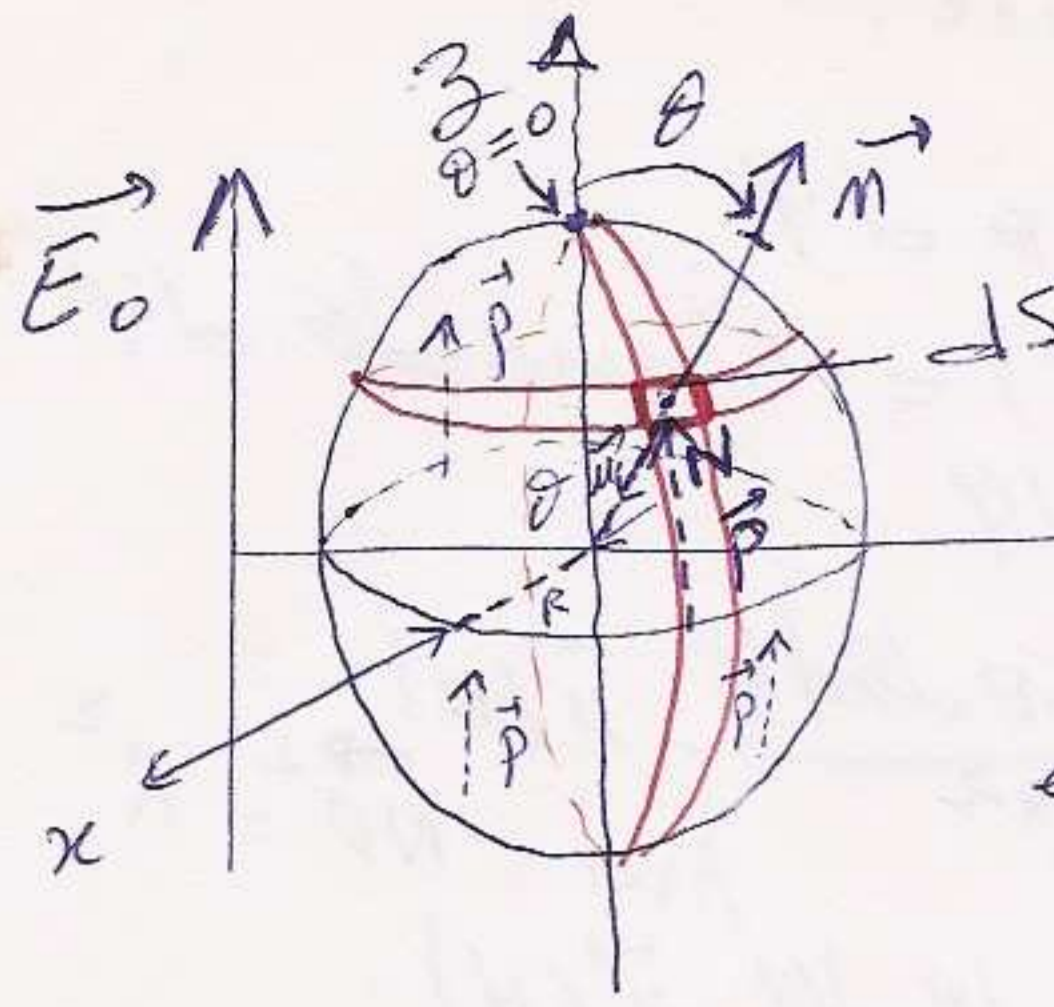 z
θ=0
θ
n⃗
E⃗₀
p⃗
dS
θ
u⃗
N
p⃗
R
p⃗
p⃗
x